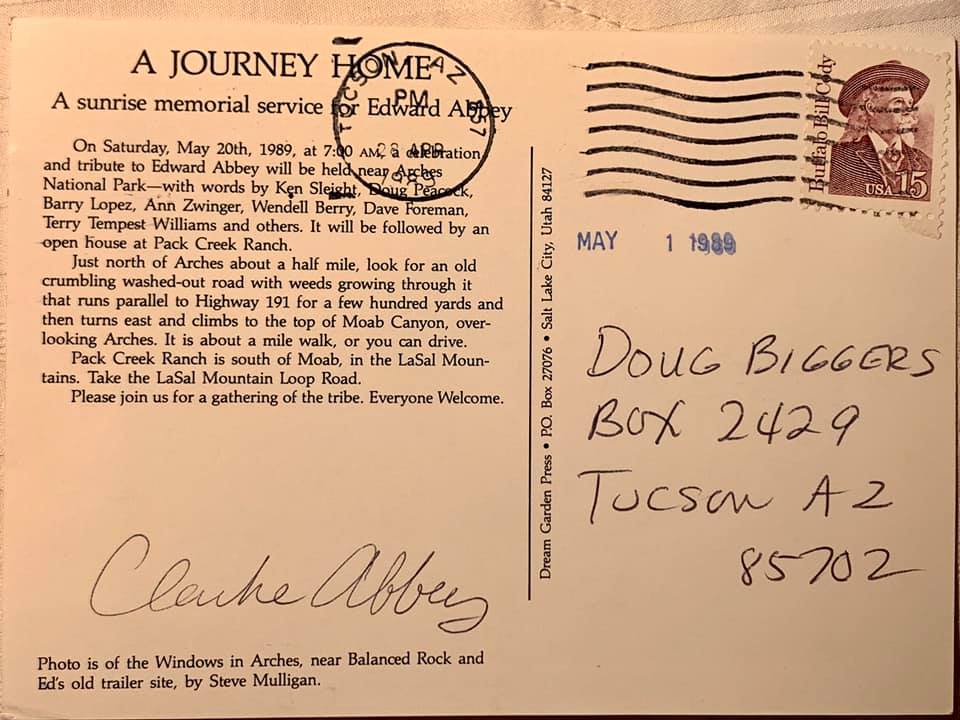 A JOURNEY HOME
A sunrise memorial service for Edward Abbey
On Saturday, May 20th, 1989, at 7:00 AM, a celebration
and tribute to Edward Abbey will be held near Arches
National Park—with words by Ken Sleight, Doug Peacock,
Barry Lopez, Ann Zwinger, Wendell Berry, Dave Foreman,
Terry Tempest Williams and others. It will be followed by an
open house at Pack Creek Ranch.
Just north of Arches about a half mile, look for an old
crumbling washed-out road with weeds growing through it
that runs parallel to Highway 191 for a few hundred yards and
then turns east and climbs to the top of Moab Canyon, over-
looking Arches. It is about a mile walk, or you can drive.
Pack Creek Ranch is south of Moab, in the LaSal Moun-
tains. Take the LaSal Mountain Loop Road.
Please join us for a gathering of the tribe. Everyone Welcome.
Clarke Abbey
Photo is of the Windows in Arches, near Balanced Rock and
Ed's old trailer site, by Steve Mulligan.
TUCSON AZ 857
PM
28 APR
1989
Dream Garden Press • P.O. Box 27076 • Salt Lake City, Utah 84127
Buffalo Bill Cody
USA 15
MAY 1 1989
DOUG BIGGERS
BOX 2429
TUCSON AZ
85702